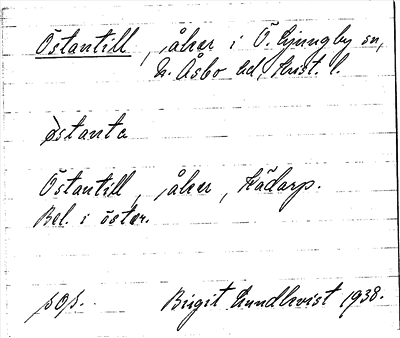 Östantill, åker i Ö. Ljungby sn,
N. Åsbo hd, Krist. l.
östanta
Östantill, åker, Kädarp.
Bel. i öster.
pop. Birgit Lundkvist 1938.